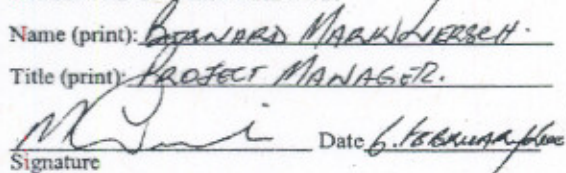 Name (print): BERNARD MARK
Title (print): PROJECT MANAGER.
Date 6. FEBRUARY
Signature